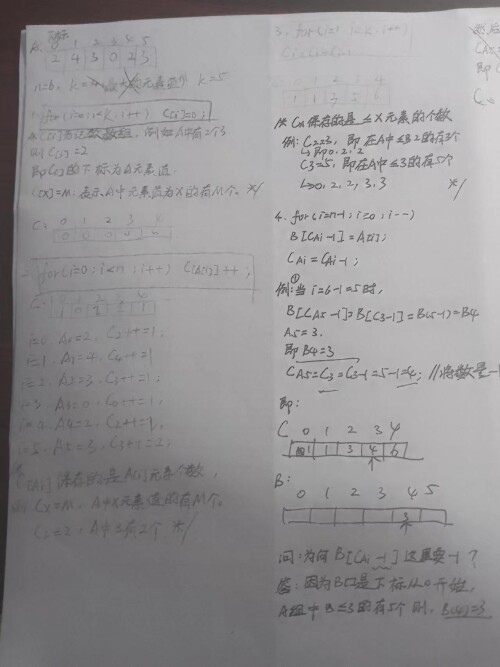 A.
0 1 2 3 4 5
2 4 3 0 2 3
n=6, k=5
1. for(i=0; i<k; i++) C[i]=0;
则 C[2]=2
即C[]的下标为A元素值.
C[X]=M. 表示A中元素值为X的有M个. */
C: 0 1 2 3 4
0 0 0 0 0
for(i=0; i<n; i++) C[A[i]]++;
i=0. A0=2. C2++=1;
i=1. A1=4. C4++=1
i=2. A2=3. C3++=1;
i=3. A3=0. C0++=1;
i=4. A4=2. C2++=2;
i=5. A5=3. C3++=2;
C[Ai] 保存的是A[i]元素个数,
Cx=M. A中X元素值的有M个.
C2=2, A中2有2个 */
3. for(i=1; i<k; i++)
0 1 2 3 4
1 1 3 5 6
/* Cx保存的是≤X元素的个数
例: C2=3, 即在A中≤2的有3个
↳即0.2.2
C3=5. 即在A中≤3的有5个
↳0.2.2.3.3 */
4. for(i=n-1; i≥0; i--)
B[CAi-1]=A[i];
CAi=CAi-1;
①
例:当 i=6-1=5时,
B[CA5-1]=B[C3-1]=B(5-1)=B4
A5=3.
即B4=3
CA5=C3=C3-1=5-1=4; //将数量-1
即:
C 0 1 2 3 4
1 1 3 4 6
B:
0 1 2 3 4 5
3
问:为何B[CAi-1]这里要-1?
答:因为B[]是下标从0开始,
A组中≤3的有5个则. B(4)=3